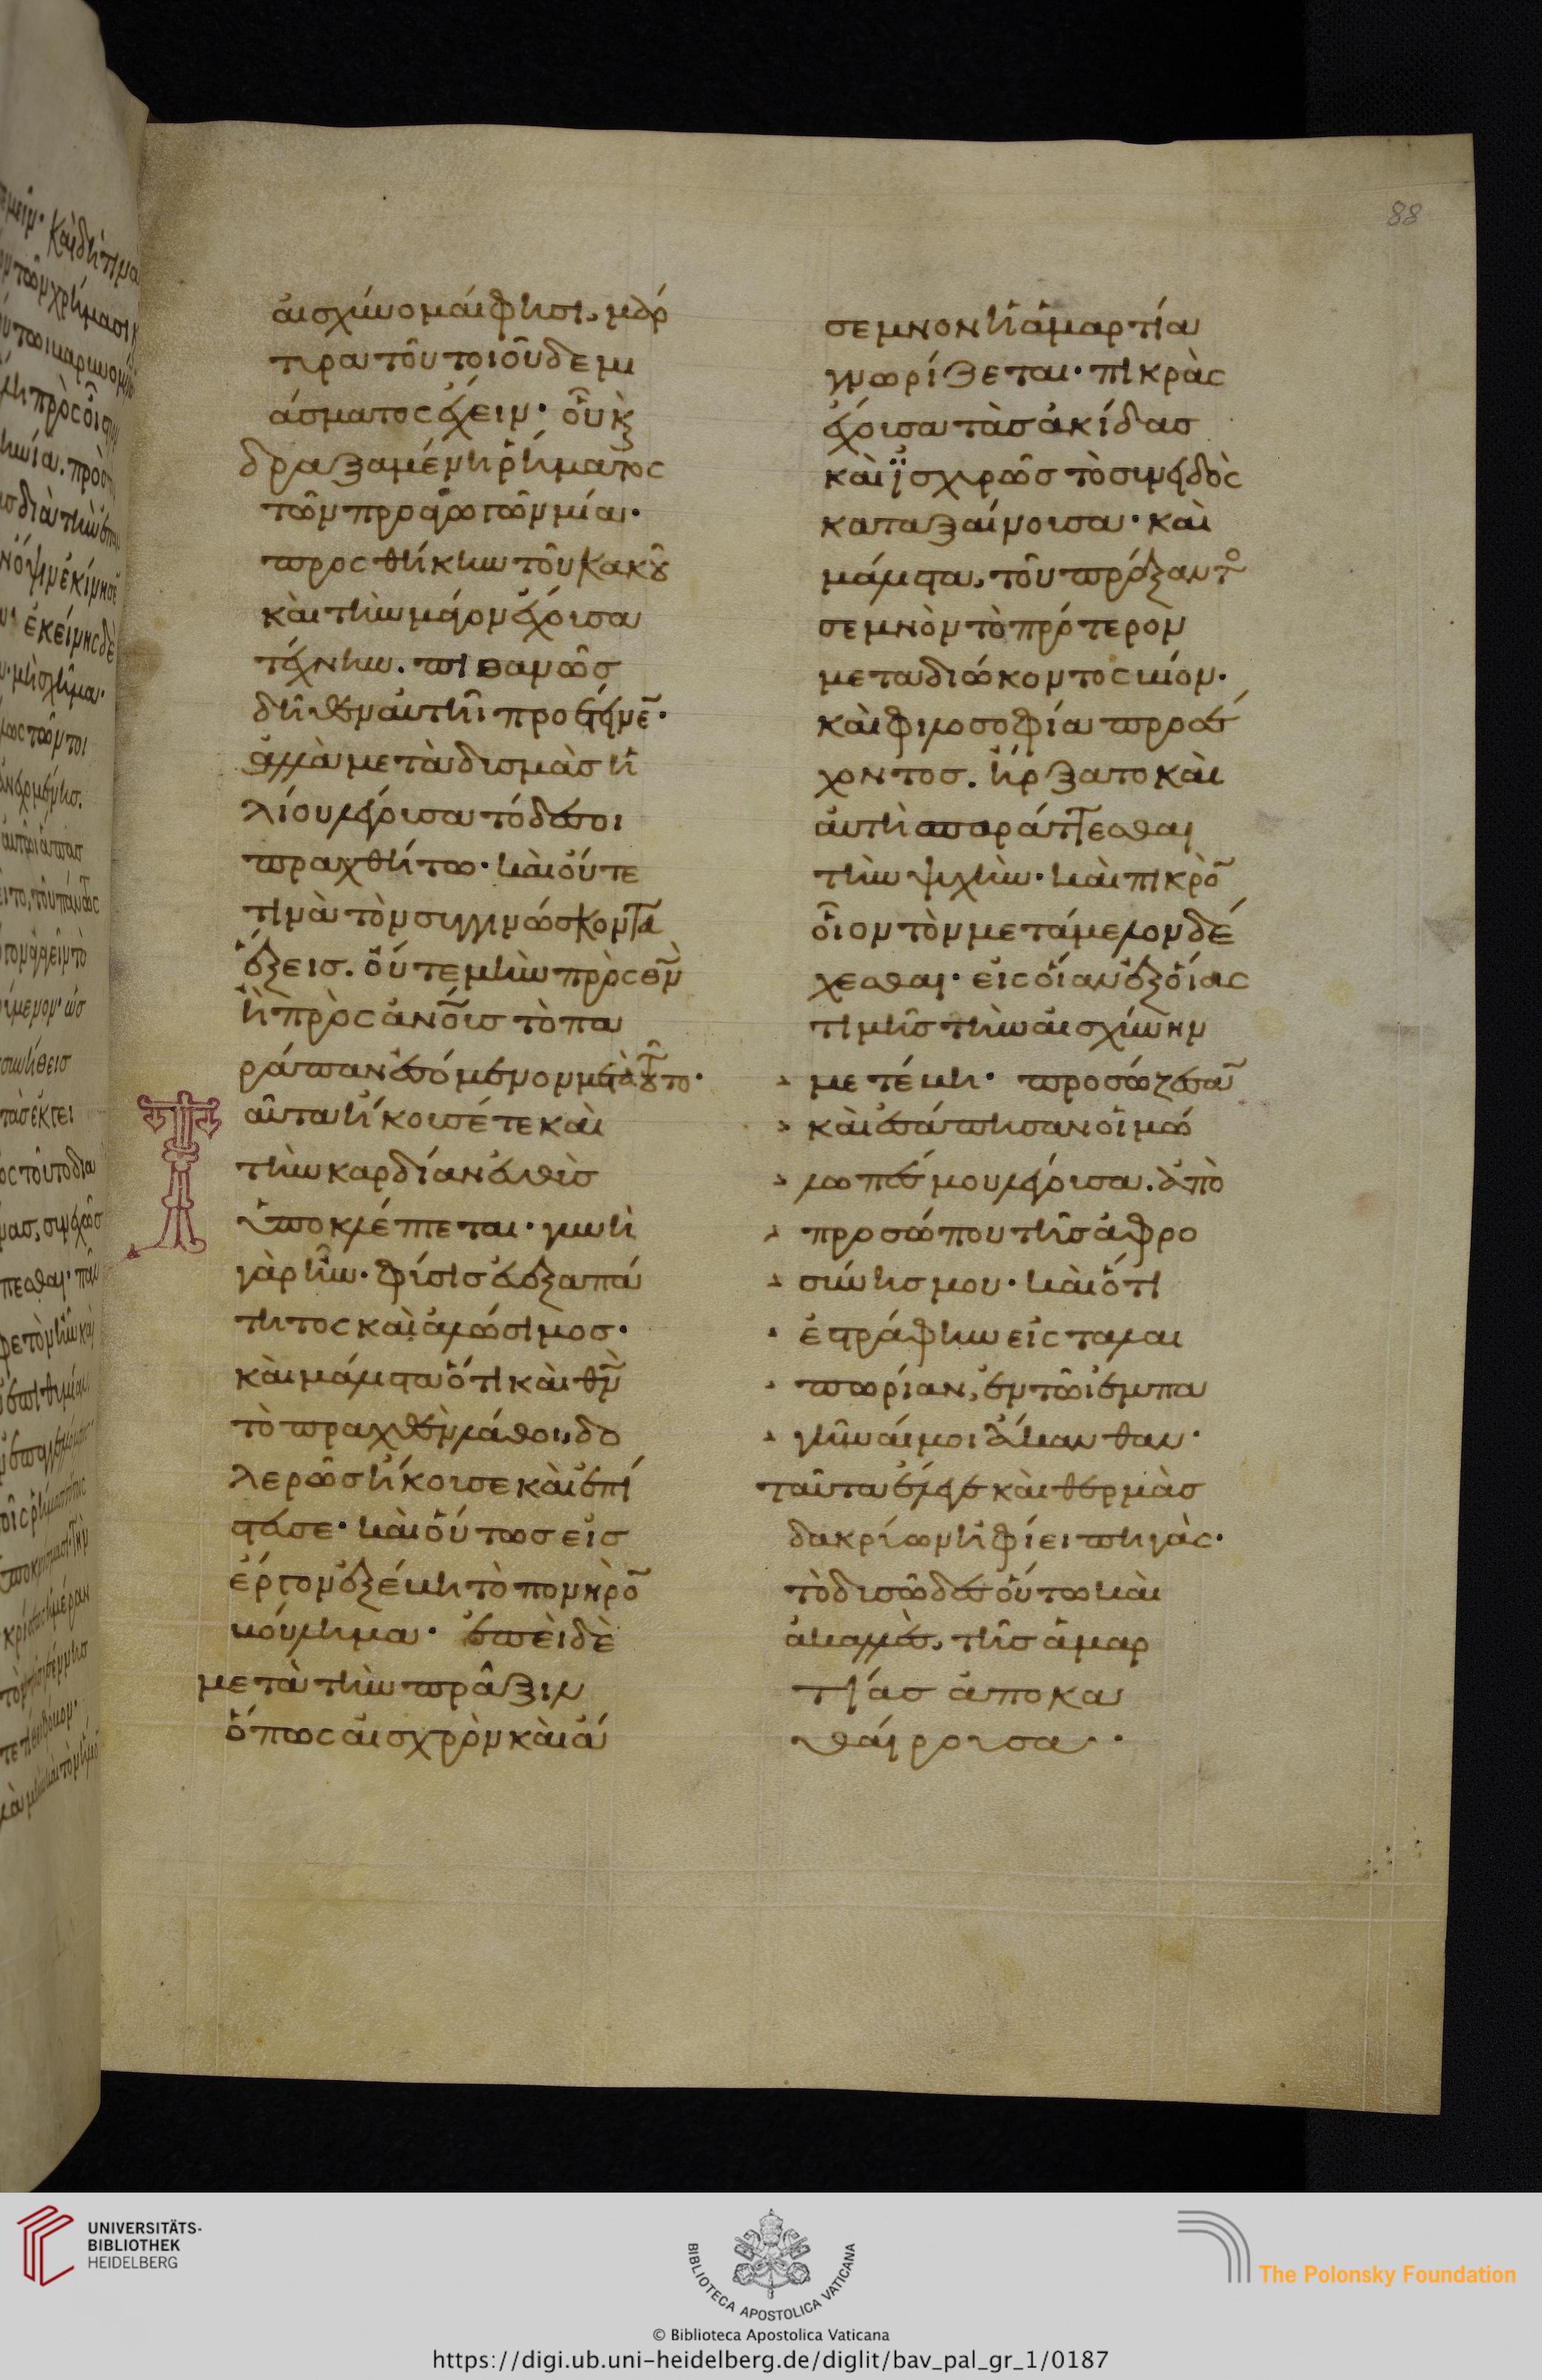 88
αἰσχύνομαι φησι, μάρ
τυρα τοῦ τοιοῦδε μι
άσματος ἔχειν· οὐκ
δραξαμένη ῥήματος
τῶν προαγωγῶν μία·
προσθήκην τοῦ κακοῦ
καὶ τὴν ἔχουσα
τέχνην. πιθανῶς
δῆθεν αὐτῆι
ἀλλὰ μετὰ δυσμὰς ἡ
λίου λέγουσα τόδέ σοι
πραχθήτω· καὶ οὔτε
τινὰ τὸν συγγινώσκοντα
ἕξεις. οὔτε μὴν πρὸς θν
ἢ πρὸς ἀνοις τὸ πα
ράπαν ἑπόμενον μετὰ τοῦτο·
Ταῦτα ἤκουσέ τε καὶ
τὴν καρδίαν εὐθὺς
ὑποκλέπτεται· γυνὴ
γὰρ ἦν· φύσις εὐεξαπά
τητος καὶ ἁλώσιμος·
καὶ μάλιστα ὅτι καὶ θν
τὸ πραχθὲν λάθοι, δο
λερῶς ἤκουσε καὶ ἐπί
στευσε· καὶ οὕτως εἰς
ἔργον ἐξέβη τὸ πονηρὸν
βούλημα· ἐπεὶ δὲ
μετὰ τὴν πρᾶξιν
ὅπως αἰσχρὸν καὶ ἄ
σεμνον ἡ ἁμαρτία
γνωρίζεται· πικρὰς
ἔχουσα τὰς ἀκίδας
καὶ ϊσχυρῶς τὸ συνειδὸς
καταξαίνουσα· καὶ
μάλιστα, τοῦ πράξαντο
σεμνὸν τὸ πρότερον
μεταδιώκοντος βίον·
καὶ φιλοσοφία προσέ
χοντος. ἤρξατο καὶ
αὐτὴ σπαράττεσθαι
τὴν ψυχὴν· καὶ πικρὸν
οἷον τὸν μετάμελον δέ
χεσθαι· εἰς οἵαν ἐξ οἵας
τιμῆς τὴν αἰσχύνην
μετέβη· προσώζεσαν
καὶ ἐσάπησαν οἱ μώ
λωπές μου λέγουσα. ἀπὸ
προσώπου τῆς ἀφρο
σύνης μου· καὶ ὅτι
ἐστράφην εἰς ταλαι
πωρίαν, ἐν τῶι ἐμπα
γῆναί μοι ἄκανθαν·
ταῦτα ἔλεγε καὶ θερμὰς
δακρύων ἠφίει πηγὰς·
τὸ δυσῶδες οὕτω καὶ
ἀκαλλὲς, τῆς ἁμαρ
τίας ἀποκα
θαίρουσα··
UNIVERSITÄTS-
BIBLIOTHEK
HEIDELBERG
BIBLIOTECA APOSTOLICA VATICANA
The Polonsky Foundation
© Biblioteca Apostolica Vaticana
https://digi.ub.uni-heidelberg.de/diglit/bav_pal_gr_1/0187